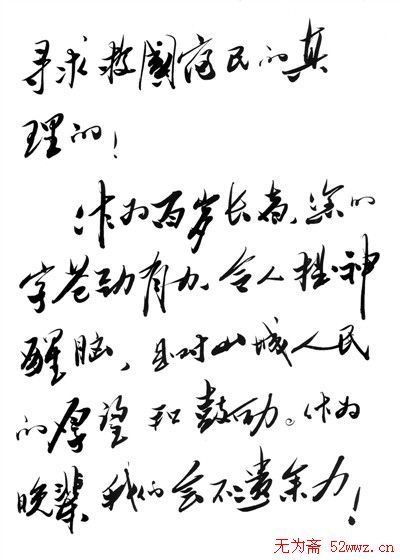 寻求救國富民的真
理的!
作为百岁长者,您的
字苍劲有力,令人提神
醒脑,是对山城人民
的厚望和鼓励。作为
晚辈,我们会不遗余力!
无为斋 52wwz.cn